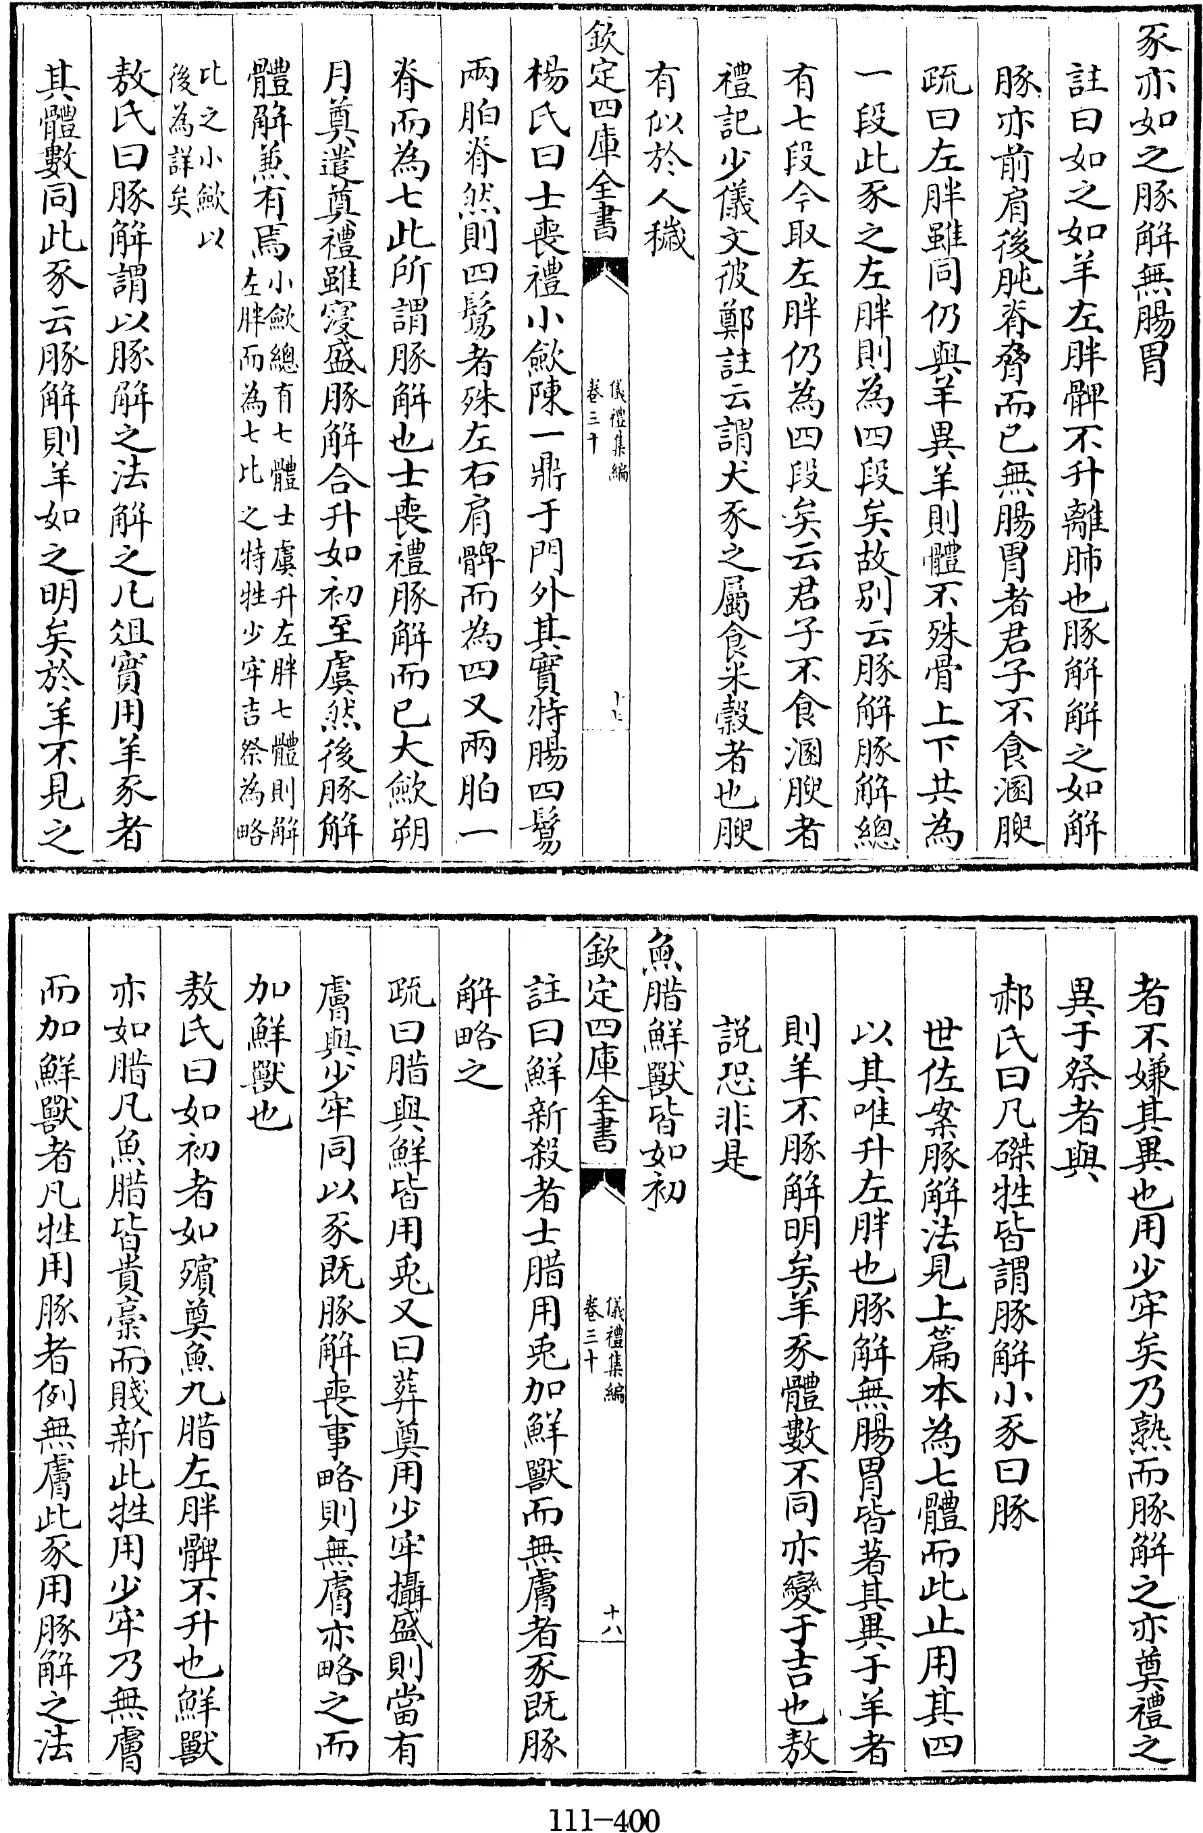 豕亦如之豚解無腸胃
註曰如之如羊左胖髀不升離肺也豚解解之如解
豚亦前肩後肫脊脅而已無腸胃者君子不食溷腴
疏曰左胖雖同仍與羊異羊則體不殊骨上下共為
一段此豕之左胖則為四段矣故别云豚解豚解總
有七段今取左胖仍為四段矣云君子不食溷腴者
禮記少儀文彼鄭註云謂犬豕之屬食米糓者也腴
有似於人穢
欽定四庫全書
儀禮集編
卷三十
楊氏曰士喪禮小歛陳一鼎于門外其實特腸四鬄
兩胉脊然則四鬄者殊左右肩髀而為四又兩胉一
脊而為七此所謂豚解也士喪禮豚解而已大歛朔
月奠遣奠禮雖寖盛豚解合升如初至虞然後豚解
體解兼有焉小歛總有七體士虞升左胖七體則解
左胖而為七比之特牲少牢吉祭為略
比之小歛以
後為詳矣
敖氏曰豚解謂以豚解之法解之凡俎實用羊豕者
其體數同此豕云豚解則羊如之明矣於羊不見之
者不嫌其異也用少牢矣乃熟而豚解之亦奠禮之
異于祭者與
郝氏曰凡磔牲皆謂豚解小豕曰豚
世佐案豚解法見上篇本為七體而此止用其四
以其唯升左胖也豚解無腸胃皆著其異于羊者
則羊不豚解明矣羊豕體數不同亦變于吉也敖
説恐非是
魚腊鮮獸皆如初
欽定四庫全書
儀禮集編
卷三十
十八
註曰鮮新殺者士腊用兎加鮮獸而無膚者豕既豚
解略之
疏曰腊與鮮皆用兎又曰葬奠用少牢攝盛則當有
膚與少牢同以豕既豚解喪事略則無膚亦略之而
加鮮獸也
敖氏曰如初者如殯奠魚九腊左胖髀不升也鮮獸
亦如腊凡魚腊皆貴槀而賤新此牲用少牢乃無膚
而加鮮獸者凡牲用豚者例無膚此豕用豚解之法
111-400